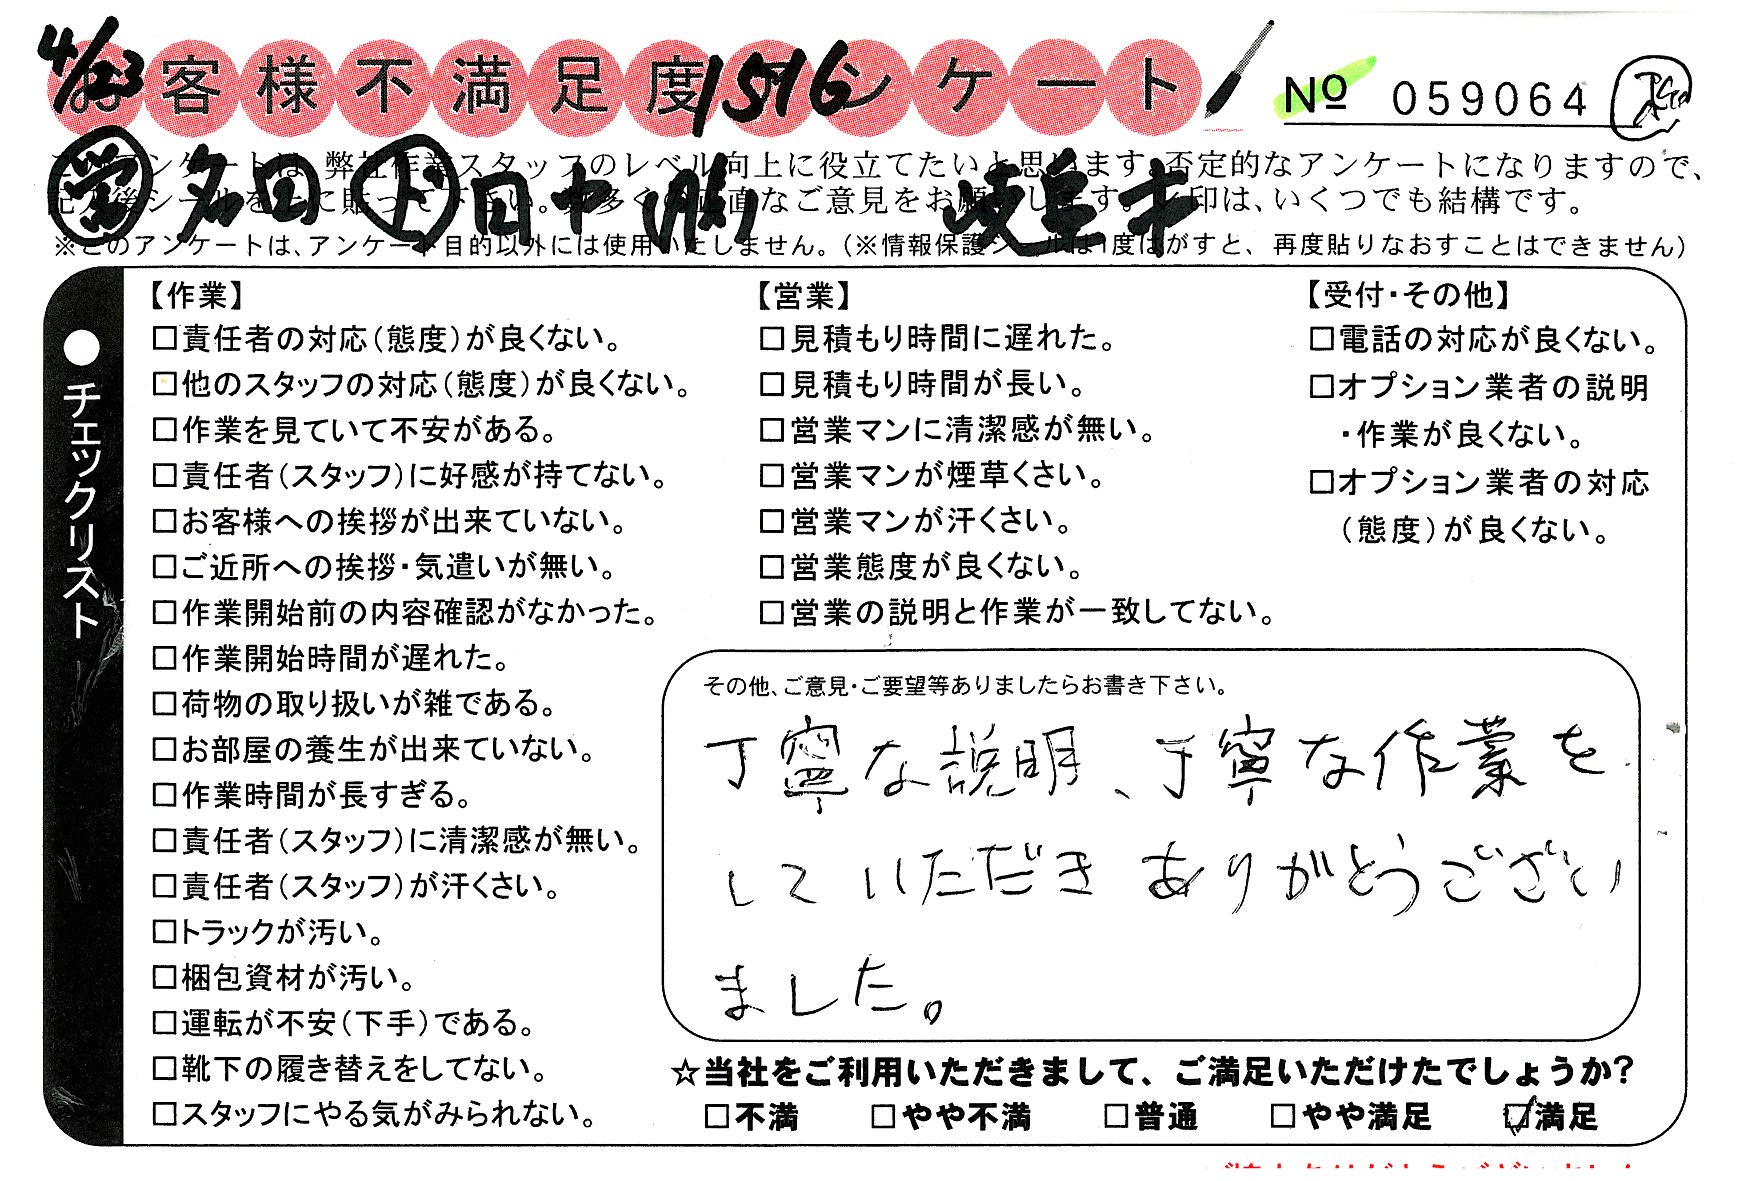 4/23 お客様不満足度アンケート 1516 No 059064
このアンケートは、弊社作業スタッフのレベル向上に役立てたいと思います。否定的なアンケートになりますので、
記入後シールを上に貼って下さい。数多くの正直なご意見をお願いします。レ印は、いくつでも結構です。
営 多田 上 田中 岐阜市
※このアンケートは、アンケート目的以外には使用いたしません。(※情報保護シールは1度はがすと、再度貼りなおすことはできません)
●チェックリスト
【作業】
□責任者の対応(態度)が良くない。
□他のスタッフの対応(態度)が良くない。
□作業を見ていて不安がある。
□責任者(スタッフ)に好感が持てない。
□お客様への挨拶が出来ていない。
□ご近所への挨拶・気遣いが無い。
□作業開始前の内容確認がなかった。
□作業開始時間が遅れた。
□荷物の取り扱いが雑である。
□お部屋の養生が出来ていない。
□作業時間が長すぎる。
□責任者(スタッフ)に清潔感が無い。
□責任者(スタッフ)が汗くさい。
□トラックが汚い。
□梱包資材が汚い。
□運転が不安(下手)である。
□靴下の履き替えをしてない。
□スタッフにやる気がみられない。
【営業】
□見積もり時間に遅れた。
□見積もり時間が長い。
□営業マンに清潔感が無い。
□営業マンが煙草くさい。
□営業マンが汗くさい。
□営業態度が良くない。
□営業の説明と作業が一致してない。
【受付・その他】
□電話の対応が良くない。
□オプション業者の説明
・作業が良くない。
□オプション業者の対応
(態度)が良くない。
その他、ご意見・ご要望等ありましたらお書き下さい。
丁寧な説明、丁寧な作業を
していただきありがとうござい
ました。
☆当社をご利用いただきまして、ご満足いただけたでしょうか?
□不満 □やや不満 □普通 □やや満足 ☑満足